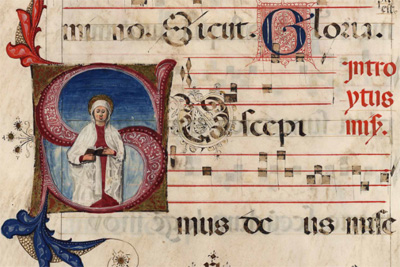 mino. Sicut. Gloria.
intro
ytus
mis.
Suscepi
mus de us mise